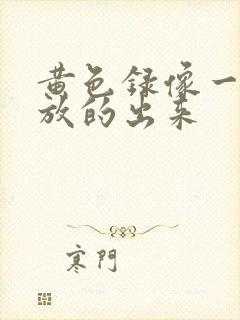 黄色録像一
放的出来
寒門